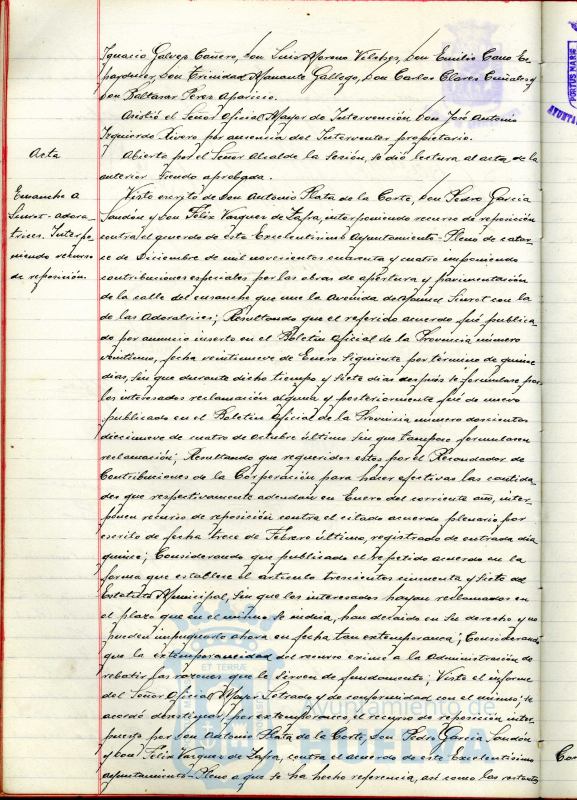 Ignacio Galvez Cañero, Don Luis Moreno Vilches, Don Emilio Cano
Don Trinidad Gallego, Don Carlos Clares y
Don Baltasar Perez Aparicio.
Asistió el Señor Oficial Mayor de Intervención Don José Antonio
Izquierdo Rivero por ausencia del Interventor propietario.
Acta
Abierta por el Señor Alcalde la Sesión, se dió lectura al acta de la
anterior siendo aprobada.
Ensanche A
Siurot-adora-
trices. Interpo-
niendo recurso
de reposición.
Visto escrito de Don Antonio Plata de la Corte, Don Pedro Garcia
y Don Felix Vazquez de Zafra, interponiendo recurso de reposición
contra el acuerdo de este Excelentisimo Ayuntamiento-Pleno de cator-
ce de Diciembre de mil novecientos cuarenta y cuatro imponiendo
contribuciones especiales por las obras de apertura y pavimentación
de la calle del ensanche que une la Avenida de Manuel Siurot con la
de las Adoratrices; Resultando que el referido acuerdo fué publica-
do por anuncio inserto en el Boletin Oficial de la Provincia numero
veintiuno, fecha veintinueve de Enero siguiente por término de quince
dias, sin que durante dicho tiempo y siete dias después se formulare por
los interesados reclamación alguna y posteriormente fué de nuevo
publicado en el Boletin Oficial de la Provincia numero doscientos
diecinueve de cuatro de Octubre último sin que tampoco formulasen
reclamación; Resultando que requeridos estos por el Recaudador de
Contribuciones de la Corporación para hacer efectivas las cantida-
des que respectivamente adeudan en Enero del corriente año, inter-
ponen recurso de reposición contra el citado acuerdo plenario por
escrito de fecha trece de Febrero último, registrado de entrada dia
quince; Considerando que publicado el repetido acuerdo en la
forma que establece el artículo trescientos cincuenta y siete del
Estatuto Municipal, sin que los interesados hayan reclamado en
el plazo que en el mismo se indica, han decaido en su derecho y no
pueden impugnarlo ahora en fecha tan extemporanea; Considerando
que la extemporaneidad del recurso exime a la Administración de
rebatir las razones que le sirven de fundamento; Visto el informe
del Señor Oficial Mayor Letrado y de conformidad con el mismo; se
acordó desestimar, por extemporaneo, el recurso de reposición inter-
puesto por Don Antonio Plata de la Corte, Don Pedro Garcia
y Don Felix Vazquez de Zafra, contra el acuerdo de este Excelentisimo
Ayuntamiento-Pleno a que se ha hecho referencia, así como las restantes
ET TERRÆ
Ayuntamiento de
HUELVA
PORTUS MARIS
AYUNT